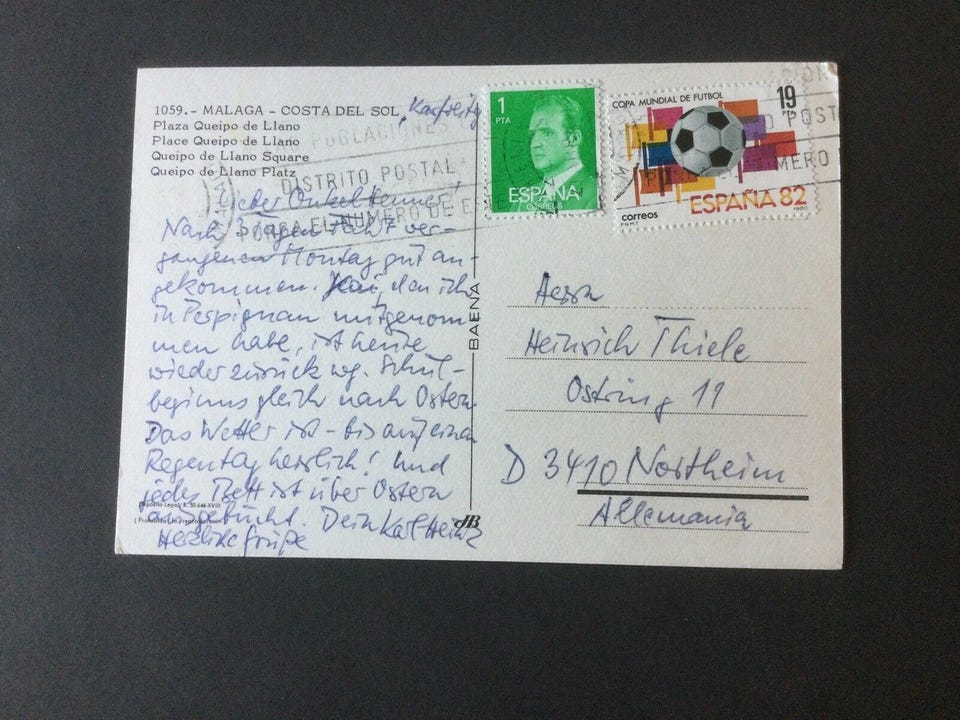 1059.- MALAGA - COSTA DEL SOL
Plaza Queipo de Llano
Place Queipo de Llano
Queipo de Llano Square
Queipo de Llano Platz
Karfreitag
POBLACIONES
DISTRITO POSTAL
PONGA EL NUMERO DE
Lieber Onkel
Nach 3 Tagen Fahrt ver-
gangenen Montag gut an-
gekommen. den ich
in Perpignan mitgenom
men habe, ist heute
wieder zurück wg. Schul-
beginns gleich nach Ostern.
Das Wetter ist - bis auf einen
Regentag herrlich! Und
jedes Bett ist über Ostern
ausgebucht. Dein Karl Heinz
Herzliche Grüße
Depósito Legal B.
BAENA
1
PTA
ESPAÑA
CORREOS
COPA MUNDIAL DE FUTBOL
19
PTA
ESPAÑA 82
correos
F.N.M.T.
1980
Herrn
Heinrich Thiele
Ostring 11
D 3410 Northeim
Allemania